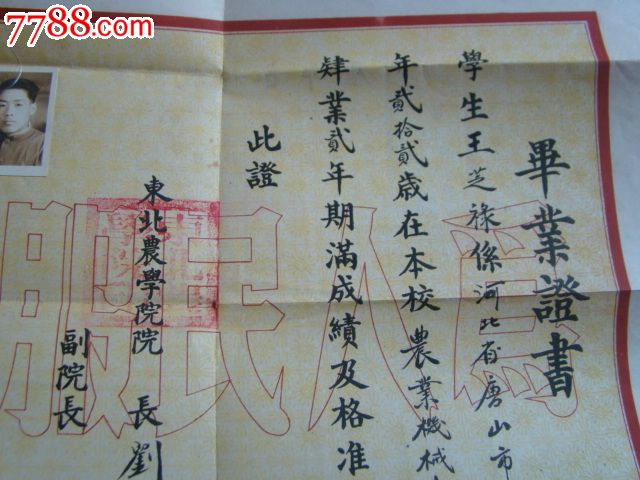 7788.com
畢業證書
學生王芝祿係河北省唐山市
年貳拾貳歲在本校農業機械
肄業貳年期滿成績及格准
此證
東北農學院院長劉
副院長
為人民服